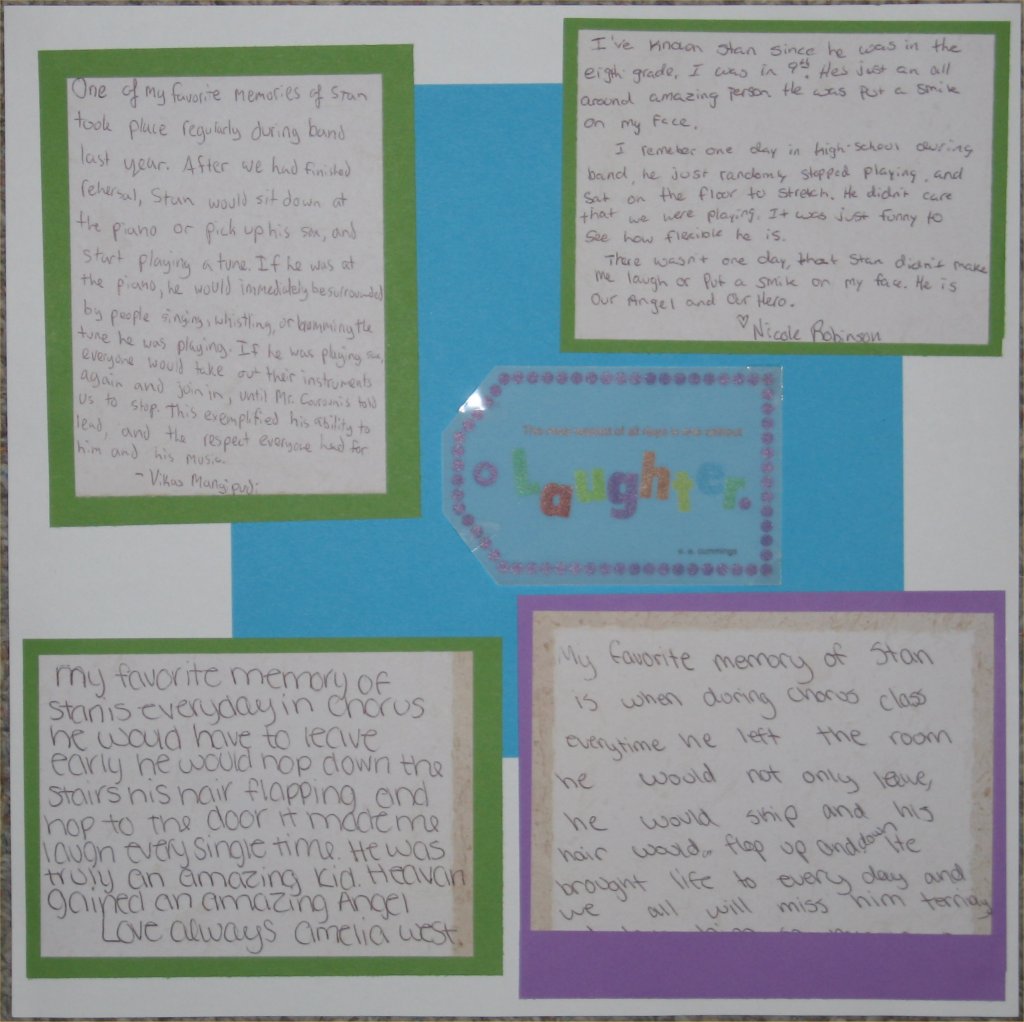 One of my favorite memories of Stan
took place regularly during band
last year. After we had finished
rehersal, Stan would sit down at
the piano or pick up his sax, and
start playing a tune. If he was at
the piano, he would immediately be surrounded
by people singing, whistling, or humming the
tune he was playing. If he was playing sax,
everyone would take out their instruments
again and join in, until Mr. told
us to stop. This exemplified his ability to
lead, and the respect everyone had for
him and his music.
- Vikas Mangipudi
I've known Stan since he was in the
eigth grade, I was in 9th. He's just an all
around amazing person He was put a smile
on my face.
I remeber one day in high-school during
band, he just randomly stopped playing, and
sat on the floor to stretch. He didn't care
that we were playing. It was just funny to
see how flexible he is.
There wasn't one day, that Stan didn't make
me laugh or Put a smile on my face. He is
Our Angel and Our Hero.
♡ Nicole Robinson
The most wasted of all days is one without
laughter.
e. e. cummings
my favorite memory of
Stan is everyday in chorus
he would have to leave
early he would hop down the
stairs his hair flapping and
hop to the door it made me
laugh every single time. He was
truly an amazing kid. Heavan
gained an amazing Angel
Love always amelia west.
My favorite memory of Stan
is when during chorus class
everytime he left the room
he would not only leave,
he would skip and his
hair would flop up and down He
brought life to every day and
we all will miss him